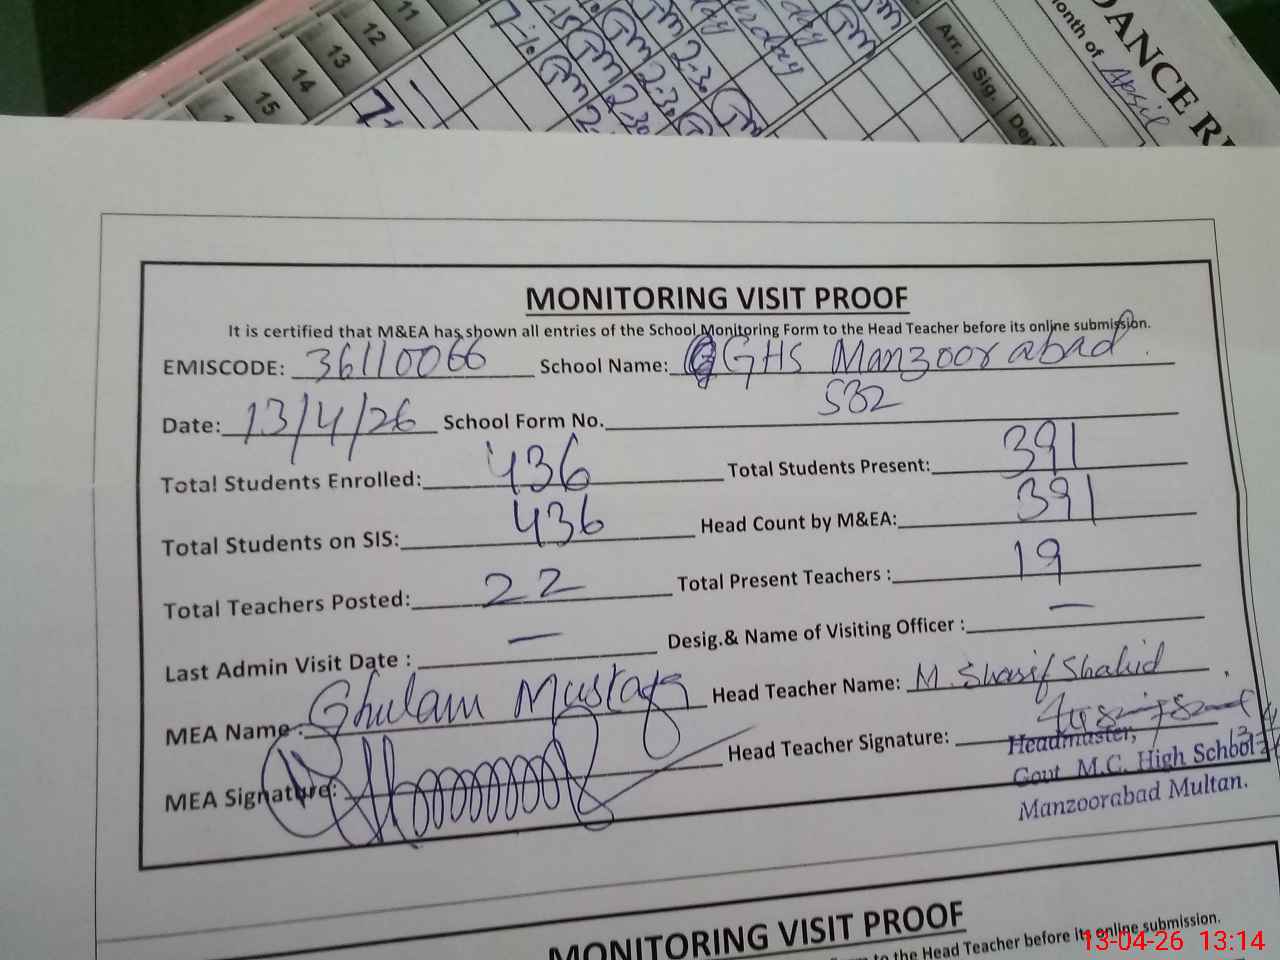 11
12
13
14
15
Arr.
Sig.
Dep
DANCE RE
onth of April
2.30
2.30
2.30
MONITORING VISIT PROOF
It is certified that M&EA has shown all entries of the School Monitoring Form to the Head Teacher before its online submission.
EMISCODE: 36110066 School Name: GHS Manzoorabad.
Date: 13/4/26 School Form No. 532
Total Students Enrolled: 436 Total Students Present: 391
Total Students on SIS: 436 Head Count by M&EA: 391
Total Teachers Posted: 22 Total Present Teachers : 19
Last Admin Visit Date : — Desig.& Name of Visiting Officer : —
MEA Name : Ghulam Mustafa Head Teacher Name: M. Sharif Shahid
MEA Signature: Head Teacher Signature:
Headmaster,
Govt M.C. High School
Manzoorabad Multan.
MONITORING VISIT PROOF
to the Head Teacher before its online submission.
13-04-26 13:14